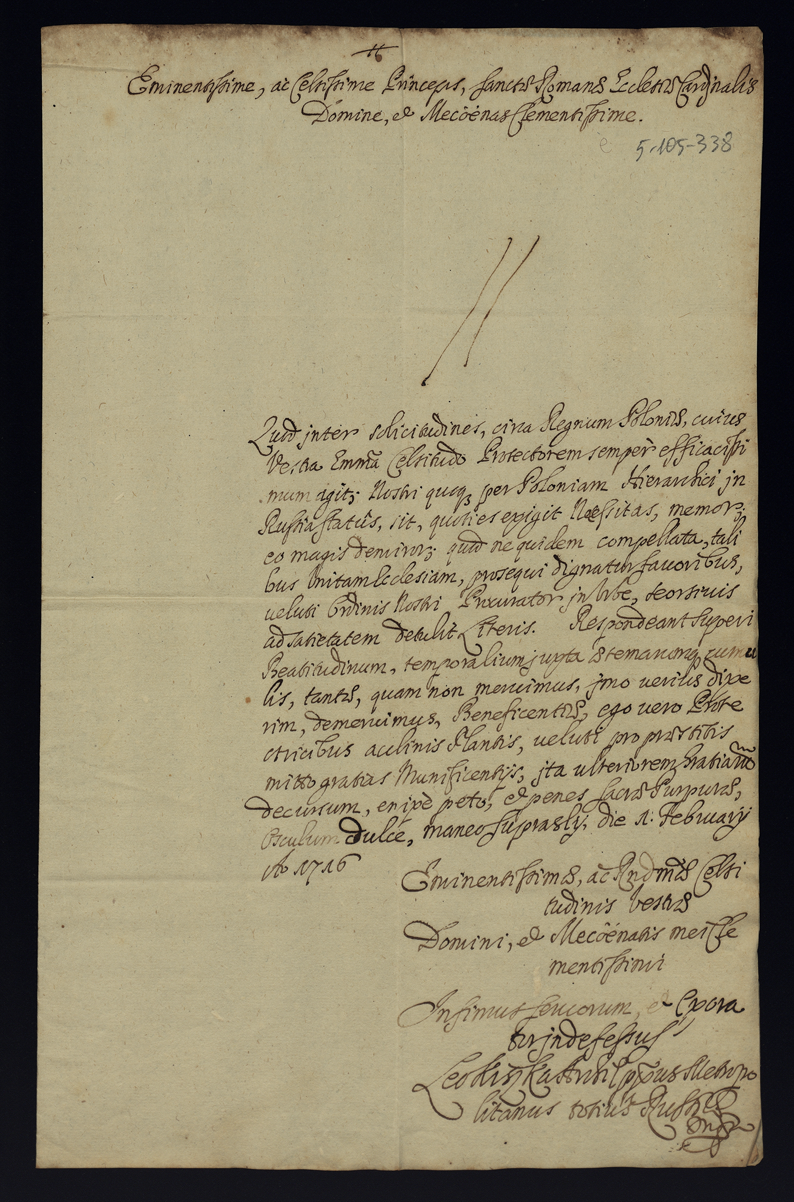 Eminentissime, ac Celsissime Princeps, Sanctæ Romanæ Ecclesiæ Cardinalis
Domine, et Mecöenas Clementissime.
5-105-338
Quod inter solicitudines, circa Regnum Poloniæ, cuius
Vestra Emma Celsitudo Protectorem semper efficacissi
mum agit; Nostri quoq; per Poloniam Hierarchici in
Russia status, sit, quoties exigit Necessitas, memor;
eo magis demiror; quod ne quidem compellata, tali
bus Unitam Ecclesiam, prosequi dignatur favoribus,
veluti Ordinis Nostri Procurator in Urbe, seorsivis
ad satietatem detulit Literis. Respondeant Superi
Beatitudinum, temporalium juxta æternarumq; cumu
lis, tantæ, quam non meruimus, jmo verius dixe
rim, demeruimus, Beneficentiæ, ego vero Prote
ctricibus acclinis Plantis, veluti pro præstitis
mitto gratias Munificentijs, jta ulteriorem Gratiarum
decursum, enixè peto, et penes Sacræ Purpuræ,
Osculum dulce, maneo Suprasly, die 1. February
Ao 1716
Eminentissimæ, ac Rndmæ Celsi
tudinis Vestræ
Domini, et Mecöenatis mei Cle
mentissimi
Infimus servorum, et Exora
tor indefessus
Leo Kiszka Archi Eppus Metropo
litanus totius Russiæ